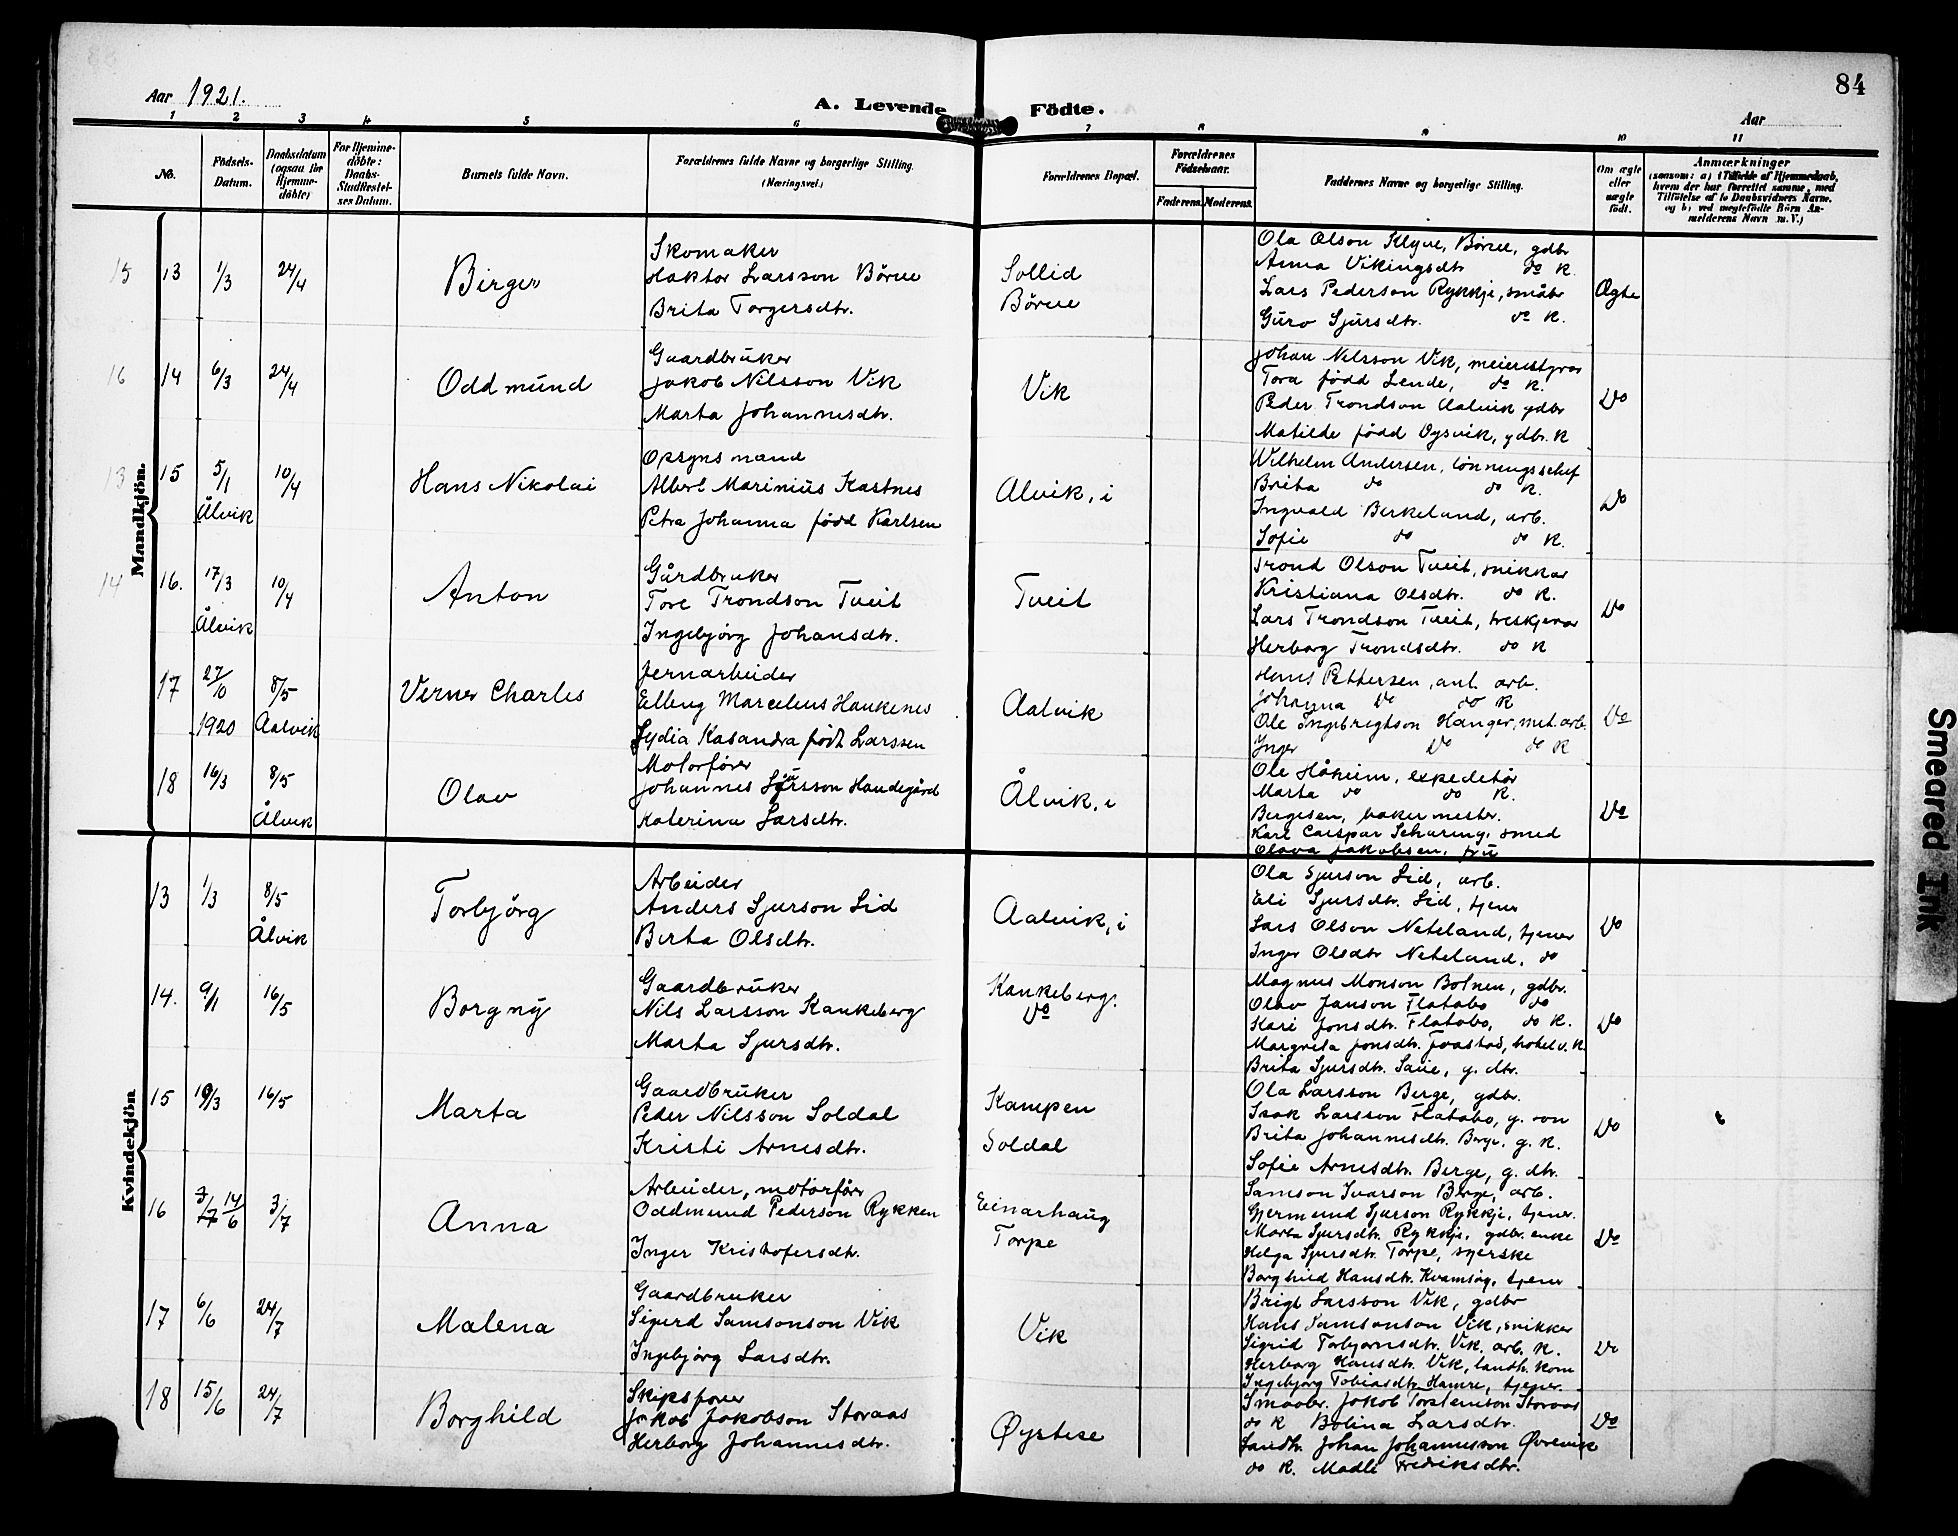 84
Aar 1921.
A. Levende Födte.
Aar
1 2 3 4 5 6 7 8 9 10 11
No.
Födsels-Datum.
Daabsdatum (ogsaa for Hjemme-döbte)
For Hjemme-döbte: Daabs-Stadfæstel-ses Datum.
Barnets fulde Navn.
Forældrenes fulde Navne og borgerlige Stilling.
(Næringsvei.)
Forældrenes Bopæl.
Forældrenes Födselsaar.
Faderens. Moderens.
Faddernes Navne og borgerlige Stilling.
Om ægte eller uægte födt.
Anmærkninger
(saasom: a) i Tilfælde af Hjemmedaab,
hvem der har forrettet samme, med
Tilföielse af to Daabsvidners Navne,
og b) ved uegtefödte Börn An-
melderens Navn m. V.)
Mandkjön.
15 13 1/3 24/4 Birger
Skomaker
Haktor Larsson Börve
Brita Torgersdtr.
Sollid
Börve
Ola Olson Klyve, Börve, gdbr
Anna Vikingsdtr do k.
Lars Pederson Rykkje, småbr
Guro Sjursdtr. do k.
Ægte
16 14 6/3 24/4 Oddmund
Gaardbruker
Jakob Nilsson Vik
Marta Johannesdtr.
Vik
Johan Nilsson Vik, meieristyrar
Tora född Lende, do k.
Peder Trondson Aalvik gdbr
Matilde född Oysvik, gdbr. k
Do
13 15 5/1 Ålvik 10/4 Hans Nikolai
Opsynsmand
Albert Marinius Kastnes
Petra Johanna född Karlsen
Alvik, i
Wilhelm Andersen, lönningsschef
Brita do do k.
Ingvald Birkeland, arb.
Sofie do do k.
Do
14 16. 17/3 Ålvik 10/4 Anton
Gårdbruker
Tore Trondson Tveit
Ingebjörg Johansdtr.
Tveit
Trond Olson Tveit, snikkar
Kristiana Olsdtr. do k.
Lars Trondson Tveit, treskjerar
Herborg Trondsdtr. do k
Do
17 27/10 1920 8/5 Aalvik Verner Charles
Jernarbeider
Elling Marcelius Haukenes
Lydia Kasandra födt Larssen
Aalvik
Hans Pettersen, anl. arb.
Johanna Do do k
Ole Ingebregtson Hanger, met. arb.
Inger Do do k
Do
18 16/3 8/5 Ålvik Olav
Motorförer
Johannes Sjursson Handegård
Katerina Larsdtr.
Ålvik, i
Ole Håheim, expeditör
Marta do do k.
Bergesen, bakermester.
Karl Caspar Scharing, smed
Olava Jakobsen, fru
Do
Kvindekjön
13 1/3 8/5 Ålvik Torbjörg
Arbeider
Anders Sjurson Lid
Berta Olsdtr.
Aalvik, i
Ola Sjurson Lid, arb.
Eli Sjursdtr. Lid, tjener
Lars Olson Neteland, tjener
Inger Olsdtr Neteland, do
Do
14. 9/1 16/5 Borgny
Gaardbruker
Nils Larsson Kankeberg
Marta Sjursdtr.
Kankeberg.
Do
Magnus Monson Botnen, gdbr.
Olav Janson Flatabö do
Kari Jonsdtr. Flatabö, do k.
Margreta Jonsdtr. Framstad, hotelv. k.
Brita Sjursdtr. Saue, g. dtr.
Do
15 19/3 16/5 Marta
Gaardbruker
Peder Nilsson Soldal
Kristi Arnesdtr.
Kampen
Soldal
Ola Larsson Berge, gdbr.
Isak Larsson Flatabö, g. son
Brita Johannesdtr. Berge, g. k.
Sofie Arnesdtr. Berge, g. dtr.
Do
16 3/7 14/6 3/7 Anna
Arbeider, motorförer
Oddmund Pederson Rykken
Inger Kristofersdtr.
Einarhaug
Torpe
Samson Ivarson Berge, arb.
Gjermund Sjurson Rykkje, tjener.
Marta Sjursdtr. Rykkje, gdbr. enke
Helga Sjursdtr. Torpe, syerske
Borghild Hansdtr. Kvamsög, tjener
Do
17 6/6 24/7 Malena
Gaardbruker
Sigurd Samsonson Vik
Ingebjörg Larsdtr.
Vik
Brigt Larsson Vik, gdbr
Hans Samsonson Vik, snikker
Sigrid Torbjörnsdtr. Vik, arb. k.
Herborg Hansdtr. Vik, landh. kom
Ingebjörg Tobiasdtr Hamre, tjener.
Do
18 15/6 24/7 Borghild
Skipsförer
Jakob Jakobson Storaas
Herborg Johannesdtr.
Øystese
Smaabr. Jakob Torsteinson Storaas
do k Bolina Larsdtr.
Landh. Johan Johannesson Övrevik
do k. Madli Fredriksdtr.
Do
Smeared Ink